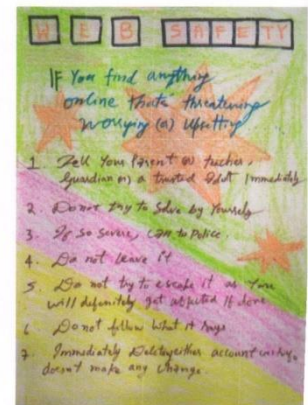 WEB SAFETY
IF You find anything
online thats threatening
worrying (or) upsetting
1. Tell Your Parent or techer,
Guardian or) a trusted Adult Immediately
2. Do not try to Solve by Yourself
3. If so severe, Call to Police.
4. Do not Leave it
5. Do not try to escape it as You
will definitely get affected If done
6 Do not follow What it Says
7. Immediately account
doesn't make any Change.